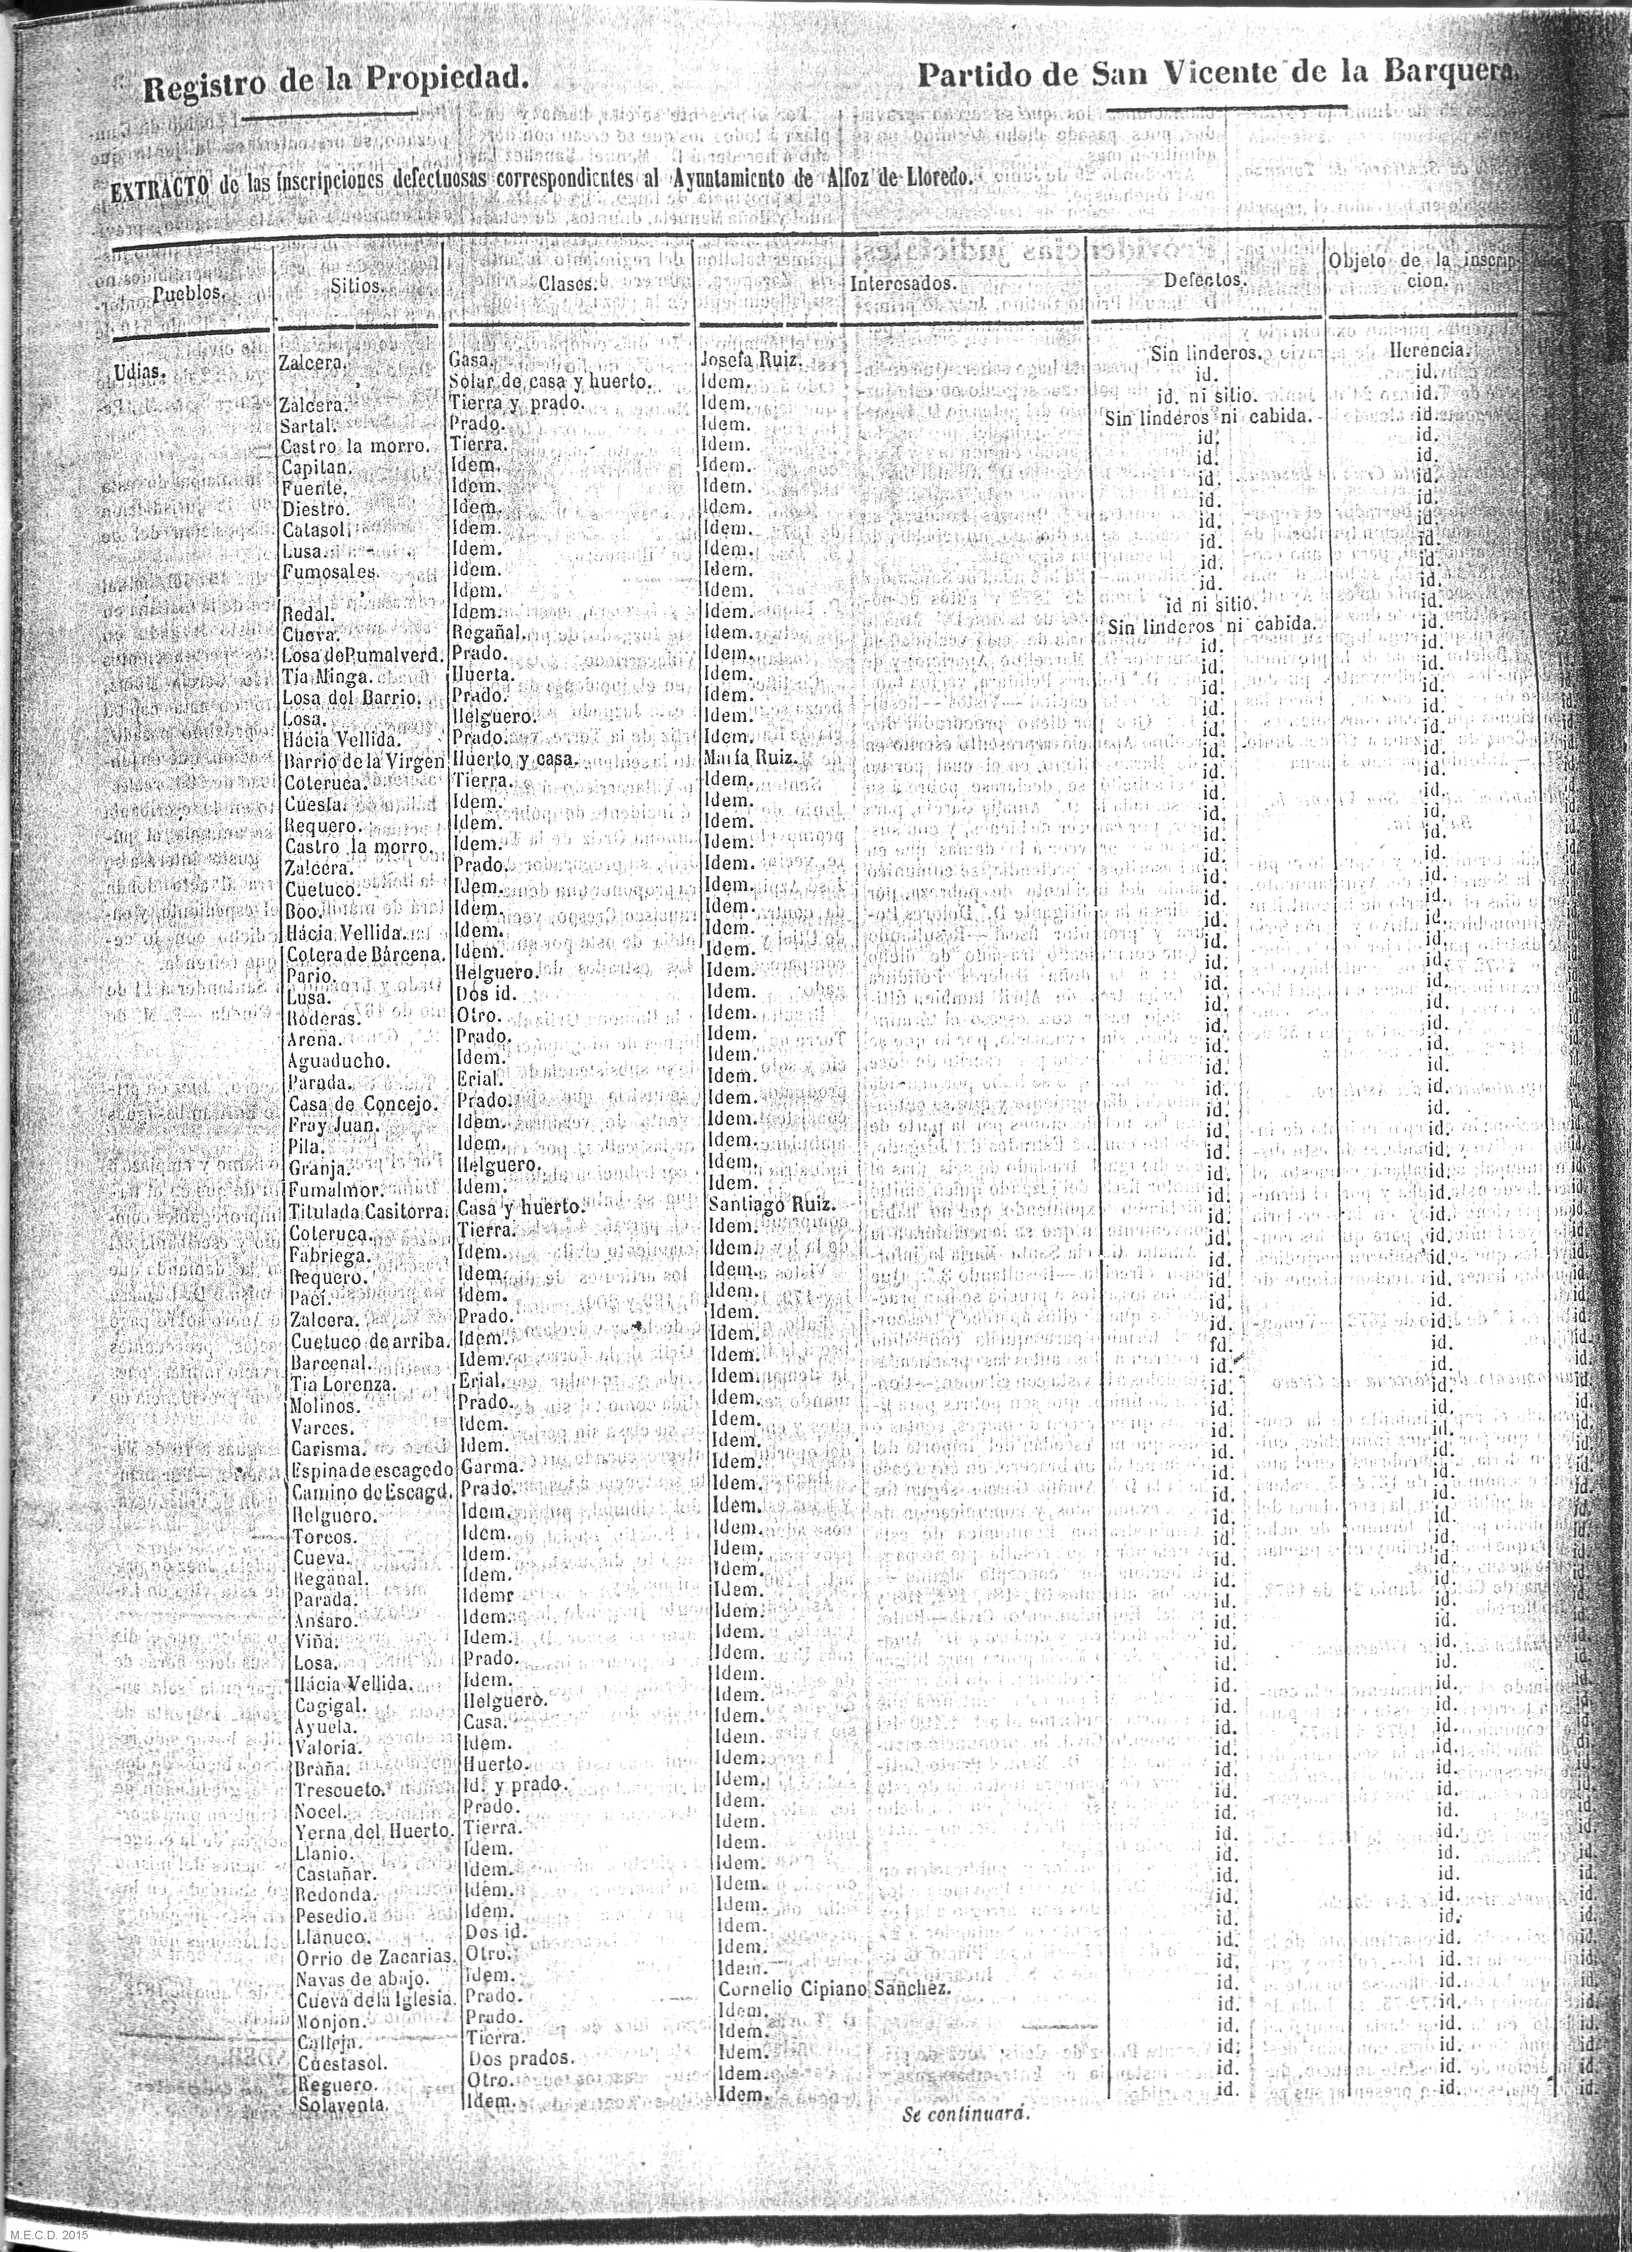 Registro de la Propiedad. Partido de San Vicente de la Barquera.
EXTRACTO de las inscripciones defectuosas correspondientes al Ayuntamiento de Alfoz de Lloredo.
Pueblos. Sitios. Clases. Interesados. Defectos. Objeto de la inscripcion.
Udias. Zalcera. Casa. Josefa Ruiz. Sin linderos. Herencia.
Solar de casa y huerto. Idem. id. id.
Zalcera. Tierra y prado. Idem. id. ni sitio. id.
Sartal. Prado. Idem. Sin linderos ni cabida. id.
Castro la morro. Tierra. Idem. id. id.
Capitan. Idem. Idem. id. id.
Fuente. Idem. Idem. id. id.
Diestro. Idem. Idem. id. id.
Catasol. Idem. Idem. id. id.
Lusa. Idem. Idem. id. id.
Fumosales. Idem. Idem. id. id.
Idem. Idem. id. id.
Redal. Idem. Idem. id ni sitio. id.
Cueva. Regañal. Idem. Sin linderos ni cabida. id.
Losa de Pumalverd. Prado. Idem. id. id.
Tia Minga. Huerta. Idem. id. id.
Losa del Barrio. Prado. Idem. id. id. id.
Losa. Helguero. Idem. id. id. id.
Hácia Vellida. Prado. Idem. id. id. id.
Barrio de la Virgen Huerto y casa. María Ruiz. id. id. id.
Coteruca. Tierra. Idem. id. id. id.
Cuesta. Idem. Idem. id. id. id.
Requero. Idem. Idem. id. id. id.
Castro la morro. Idem. Idem. id. id. id.
Zalcera. Prado. Idem. id. id. id.
Cuetuco. Idem. Idem. id. id. id.
Boo. Idem. Idem. id. id. id.
Hácia Vellida. Idem. Idem. id. id. id.
Cotera de Bárcena. Idem. Idem. id. id. id.
Pario. Helguero. Idem. id. id. id.
Lusa. Dos id. Idem. id. id. id.
Roderas. Otro. Idem. id. id. id.
Arena. Prado. Idem. id. id. id.
Aguaducho. Idem. Idem. id. id. id.
Parada. Erial. Idem. id. id. id.
Casa de Concejo. Prado. Idem. id. id. id.
Fray Juan. Idem. Idem. id. id. id.
Pila. Idem. Idem. id. id. id.
Granja. Helguero. Idem. id. id. id.
Fumalmor. Idem. Idem. id. id. id.
Titulada Casitorra. Casa y huerto. Santiago Ruiz. id. id. id.
Coteruca. Tierra. Idem. id. id. id.
Fabriega. Idem. Idem. id. id. id.
Requero. Idem. Idem. id. id. id.
Paci. Idem. Idem. id. id. id.
Zalcera. Prado. Idem. id. id. id.
Cuetuco de arriba. Idem. Idem. id. id. id.
Barcenal. Idem. Idem. id. id. id.
Tia Lorenza. Erial. Idem. id. id. id.
Molinos. Prado. Idem. id. id. id.
Varces. Idem. Idem. id. id. id.
Carisma. Idem. Idem. id. id. id.
Espina de escagedo Garma. Idem. id. id. id.
Camino de Escagd. Prado. Idem. id. id. id.
Helguero. Idem. Idem. id. id. id.
Torcos. Idem. Idem. id. id. id.
Cueva. Idem. Idem. id. id. id.
Regañal. Idem. Idem. id. id. id.
Parada. Idemr Idem. id. id. id.
Ansaro. Idem. Idem. id. id. id.
Viña. Idem. Idem. id. id. id.
Losa. Prado. Idem. id. id. id.
Hácia Vellida. Idem. Idem. id. id. id.
Cagigal. Helguero. Idem. id. id. id.
Ayuela. Casa. Idem. id. id. id.
Valoria. Idem. Idem. id. id. id.
Braña. Huerto. Idem. id. id. id.
Trescueto. Id. y prado. Idem. id. id. id.
Nocel. Prado. Idem. id. id. id.
Yerna del Huerto. Tierra. Idem. id. id. id.
Llanio. Idem. Idem. id. id. id.
Castañar. Idem. Idem. id. id. id.
Redonda. Idem. Idem. id. id. id.
Pesedio. Idem. Idem. id. id. id.
Llanuco. Dos id. Idem. id. id. id.
Orrio de Zacarias. Otro. Idem. id. id. id.
Navas de abajo. Idem. Idem. id. id. id.
Cueva de la Iglesia. Prado. Cornelio Cipiano Sanchez. id. id. id.
Monjon. Prado. Idem. id. id. id.
Calleja. Tierra. Idem. id. id. id.
Cuestasol. Dos prados. Idem. id. id. id.
Reguero. Otro. Idem. id. id. id.
Solaventa. Idem. Idem. id. id. id.
Se continuará.
M.E.C.D. 2015